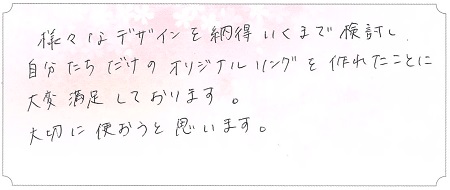 様々なデザインを納得いくまで検討し、
自分たちだけのオリジナルリングを作れたことに
大変満足しております。
大切に使おうと思います。